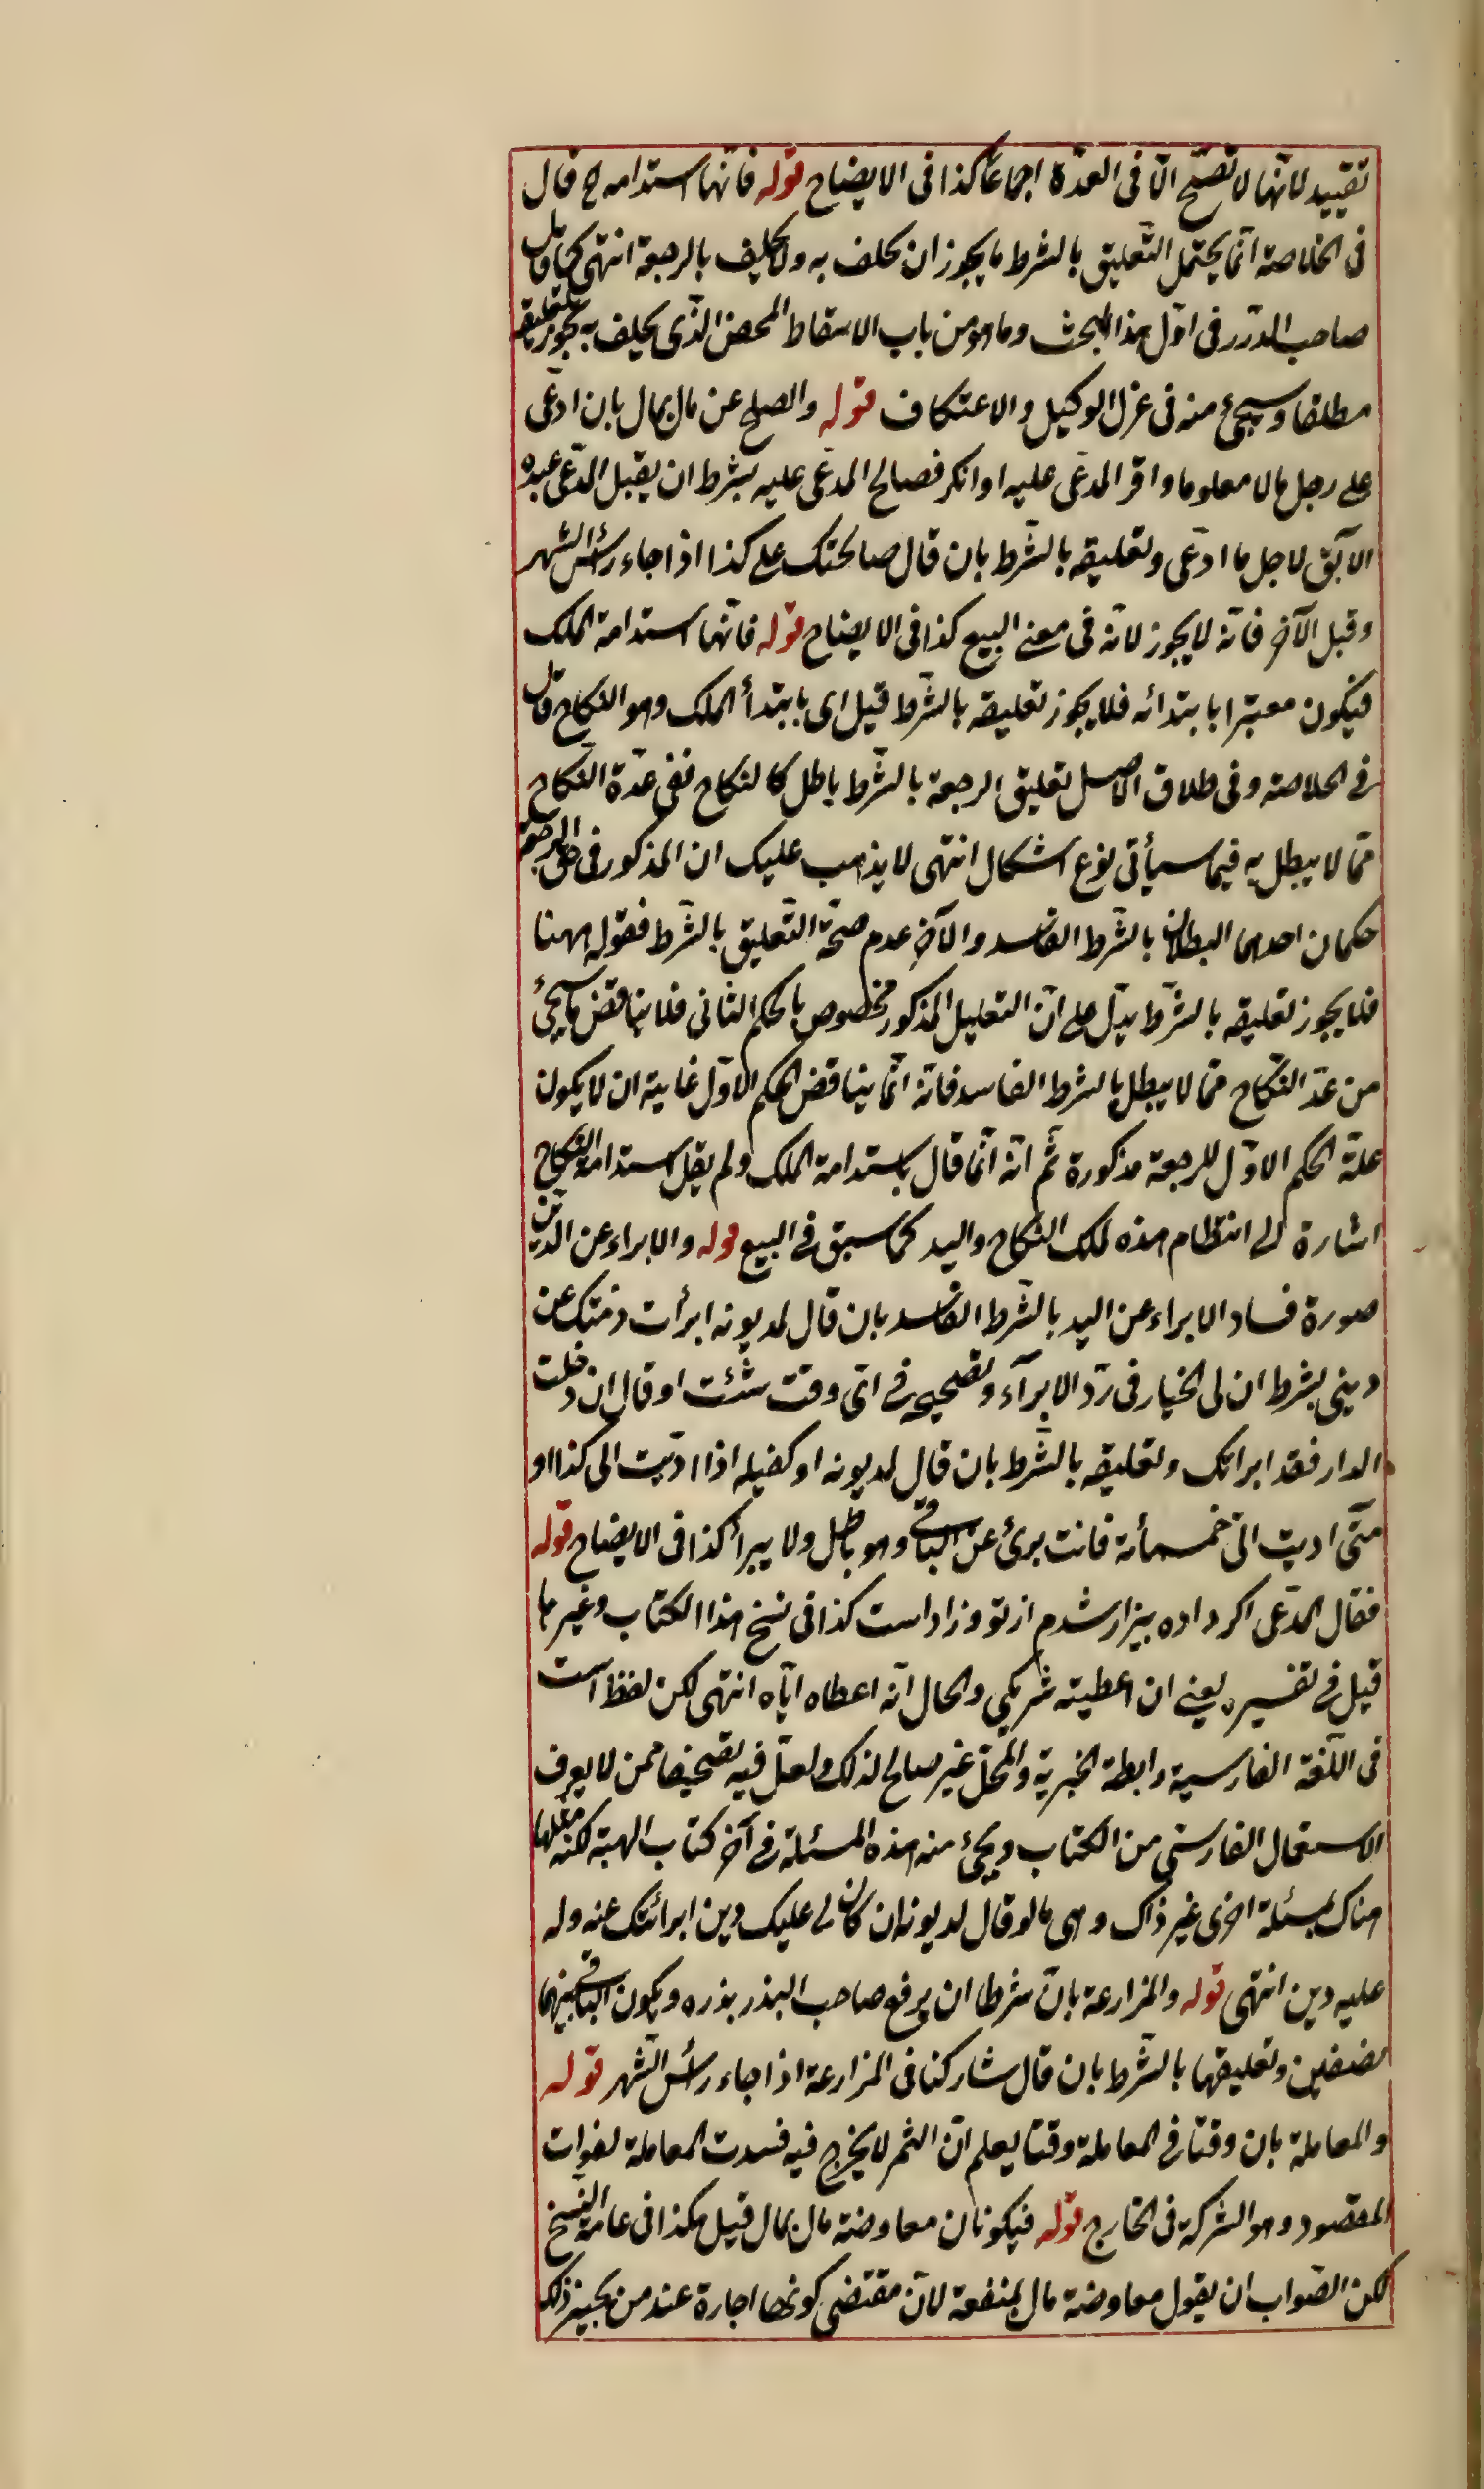 تقييد لانها لا تصح الّا فى العدّة اجماعًا كذا فى الايضاح قوله فانها استدامه ح قال
فى الخلاصة انما يحتمل التّعليق بالشرط ما يجوز ان يحلف به ولا يحلف بالرجعة انتهى كما قال
صاحب الدرر فى اوّل هذا البحث وما هو من باب الاسقاط المحض الذى يحلف به يجوز تعليقه
مطلقا وسيجئ منه فى عزل الوكيل والاعتكاف قوله والصلح عن مال بمال بان ادعى
على رجل مالا معلوما واقر المدعى عليه او انكر فصالح المدعى عليه بشرط ان يقبل المدّعى عبده
الآبق لاجل ما ادعى وتعليقه بالشّرط بان قال صالحتك على كذا اذا جاء رأس الشهر
وقبل الآخر فانه لا يجوز لانه فى معنى البيع كذا فى الايضاح قوله فانها استدامة الملك
فيكون معتبرا بابتدائه فلا يجوز تعليقه بالشّرط قيل اى بابتدأ الملك وهو النكاح قال
فى الخلاصة وفى طلاق الاصل تعليق الرجعة بالشّرط باطل كالنكاح ففى عدّة النكاح
ممّا لا يبطل به فيما سيأتى نوع اشكال انتهى لا يذهب عليك ان المذكور فى حق الرجعة
حكمان احدهما البطلان بالشّرط الفاسد والآخر عدم صحّة التّعليق بالشّرط فقوله ههنا
فلا يجوز تعليقه بالشّرط يدلّ على انّ التعليل المذكور مخصوص بالحكم الثانى فلا يناقض ما سيجئ
من عدّ النكاح ممّا لا يبطل بالشرط الفاسد فانه انّما يناقض الحكم الاوّل غايته ان لا يكون
علة الحكم الاوّل للرجعة مذكورة ثم انه انما قال باستدامة الملك ولم يقل استدامة النكاح
اشارة الى انتظام هذه لملك النكاح واليد كما سبق فى البيع قوله والابراء عن الدين
صورة فساد الابراء عن اليد بالشّرط الفاسد بان قال لمديونه ابرأت ذمتك عن
دينى بشرط ان لى الخيار فى ردّ الابرآء وتصحيحه فى اىّ وقت شئت او قال ان دخلت
الدار فقد ابراتك وتعليقه بالشّرط بان قال لمديونه او كفيله اذا ادّيت الى كذا او
متى اديت الىّ خمسمأة فانت برئ عن الباقى وهو باطل ولا يبرأ كذا فى الايضاح قوله
فقال المدعى اكر داده بيزار شدم از تو وزاد است كذا فى نسخ هذا الكتاب وغيرها
قيل فى تفسيره يعنى ان اعطيته شريكى والحال انه اعطاه ايّاه انتهى لكن لفظ است
فى اللّغة الفارسية رابطة الخبرية والمحلّ غير صالح لذلك ولعلّ فيه تصحيفا ممن لا يعرف
الاستعمال الفارسى من الكتاب ويجئ منه هذه المسئلة فى آخر كتاب الهبة لكنه عللها
هناك بمسئلة اخرى غير ذاك وهى ما لو قال لمديونه ان كان لى عليك دين ابرائتك عنه وله
عليه دين انتهى قوله والمزارعة بان شرطا ان يرفع صاحب البذر بذره ويكون الباقى بينهما
نصفين وتعليقها بالشّرط بان قال شاركنا فى المزارعة اذا جاء رأس الشهر قوله
والمعاملة بان وقتا فى المعاملة وقتا يعلم انّ الثمر لا يخرج فيه فسدت المعاملة لفوات
المقصود وهو الشركة فى الخارج قوله فيكونان معاوضة مال بمال قيل هكذا فى عامة النسخ
لكن الصّواب ان يقول معاوضة مال بمنفعة لانّ مقتضى كونها اجارة عند من يجيز ذلك